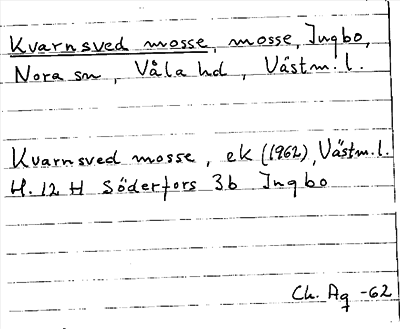 Kvarnsved mosse, mosse, Ingbo,
Nora sn, Våla hd, Västm. l.
Kvarnsved mosse, ek (1962), Västm. l.
H. 12 H Söderfors 3b Ingbo
Ch. Ag -62